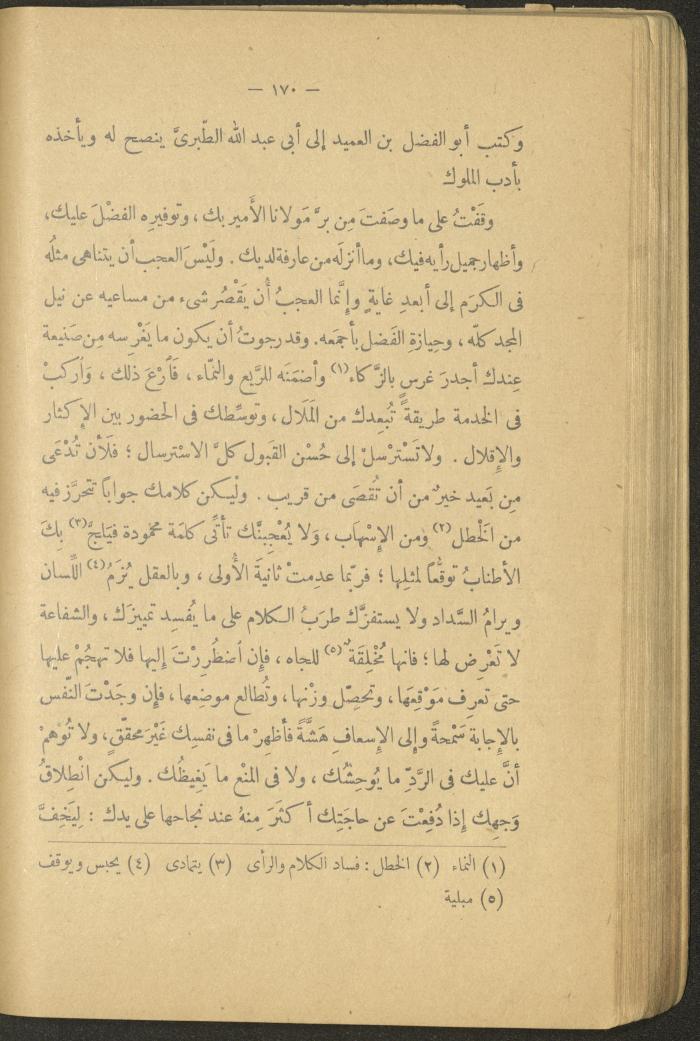 — ١٧٠ —
وكتب أبو الفضل بن العميد إلى أبى عبد الله الطّبرىَّ ينصح له ويأخذه
بأدب الملوك
وقَفْتُ على ما وصَفتَ مِن برِّ مَولانا الأَمير بك ، وتوفيرِه الفضْلَ عليك،
وأظهار جميل رأيه فيك، وما أنزلَه من عارفة لديك . ولَيْسَ العجب أن يتناهى مثلُه
فى الكرَم إلى أبعدِ غايةٍ وإنَّما العجبُ أن يَقْصُر شىء من مساعيه عن نيل
المجد كلّه ، وحِيازةِ الفَضل بأجمَعه. وقد رجوتُ أن يكون ما يَغْرِسه مِن صَنيعة
عِندك أجدرَ غرسٍ بالزَّكاء (١) وأضمَنَه للرَّيع والنَّماء ، فَارْعَ ذلك ، وَاركبْ
فى الخدمة طريقةً تُبعِدك من المَلَال ، وتوسِّطك فى الحضور بين الإكثار
والإقلال . ولا تَسْترْسلْ إلى حُسْن القَبول كلَّ الاسْترسال ؛ فَلَأن تُدْعَى
مِن بَعيد خيرٌ من أن تُقصَى من قريب . ولْيكن كلامك جواباً تتحرَّز فيه
من الخَْطل (٢) ومن الإسْهاب ، وَلا يُعْجِبنَّك تأتِّى كلمَة محمودة فيَلِجَّ (٣) بِكَ
الأطنابُ توقّعاً لمثلِها ؛ فربّما عدِمتْ ثانيةَ الأُولى ، وبالعقل يُزَمُ (٤) اللِّسان
ويرامُ السَّداد ولا يستفزَّك طرَبُ الكلام على ما يُفسِد تمييزَك ، والشفاعة
لا تَعْرِض لها ؛ فانها مُخْلِقَةٌ (٥) للجاه ، فإن اضطُرِرْتَ إليها فلا تهجُمْ عليها
حتى تعرِف مَوْقِعَها ، وتحصّل وزْنها ، وتُطالع موضِعها ، فإن وجَدْتَ النّفس
بالإجابة سَمْحةً وإلى الإسعاف هَشَّةً فأظهِرْ ما فى نفسِك غَيْرَ محقّقٍ، ولا تُوهمْ
أنَّ عليك فى الرَّدِّ ما يُوحِشُك ، ولا فى المنْع ما يَغِيظُك . وليكن انْطِلاقُ
وَجهِك إذا دُفِعْتَ عن حاجَتِك أكثَرَ مِنهُ عند نجاحها على يدك : لِيَخِفَّ
(١) النماء (٢) الخطل : فساد الكلام والرأى (٣) يتمادى (٤) يحبس ويوقف
(٥) مبلية